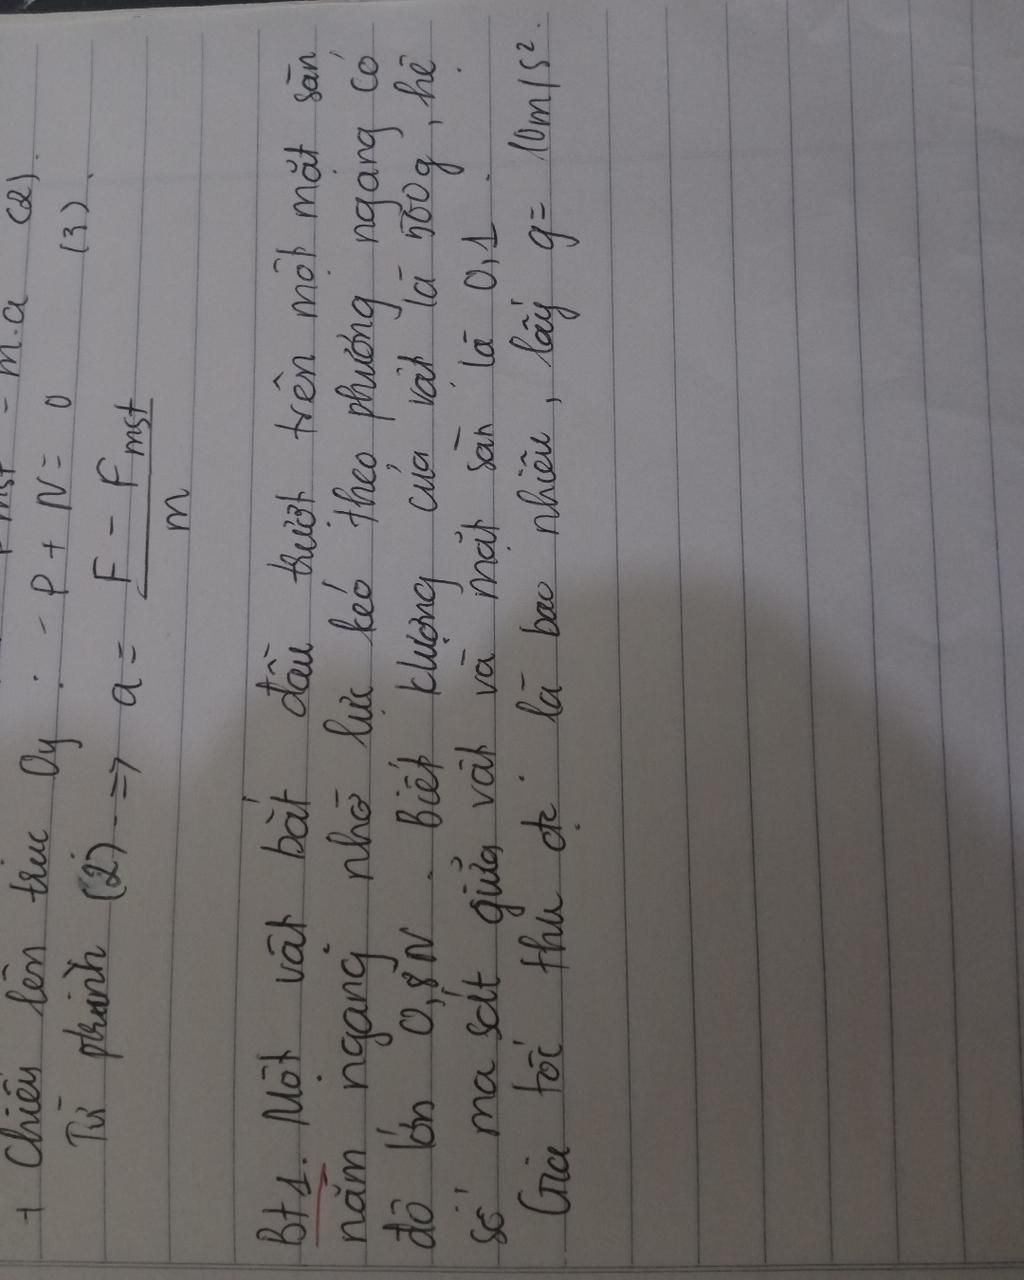 Fmst = m.a (2).
+ Chiếu lên trục Oy : - P + N = 0 (3).
Từ phình (2) => a = F - Fmst
m
Bt1. Một vật bắt đầu trượt trên một mặt sàn
nằm ngang nhờ lực kéo theo phương ngang có
độ lớn 0,8N. Biết klượng của vật là 500g, hệ
số ma sát giữa vật và mặt sàn là 0,1.
Gia tốc thu đc là bao nhiêu, lấy g= 10m/s².